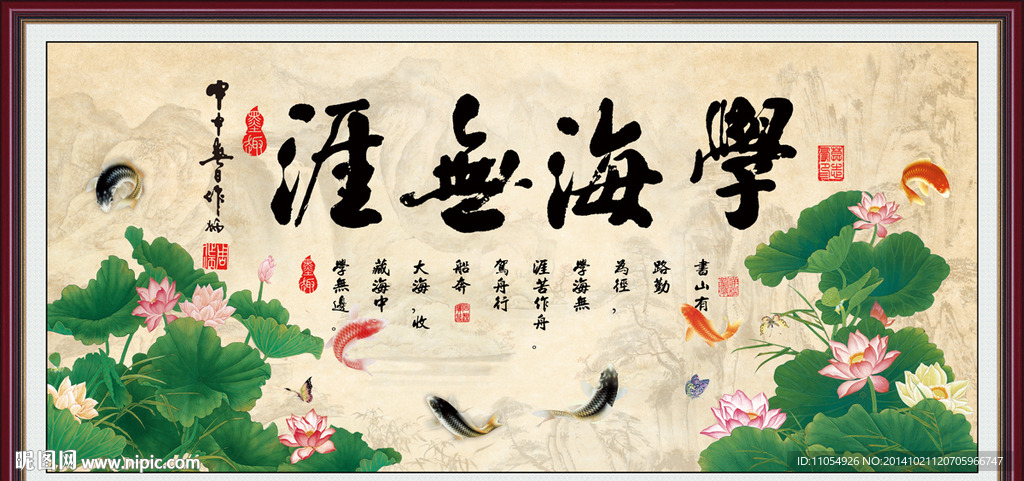 學海無涯
書山有
路勤
為徑，
學海無
涯苦作舟。
駕舟行
船奔
大海，收
藏海中
學無邊。
墨趣
昵图网 www.nipic.com
ID:11054926 NO:20141021120705966747